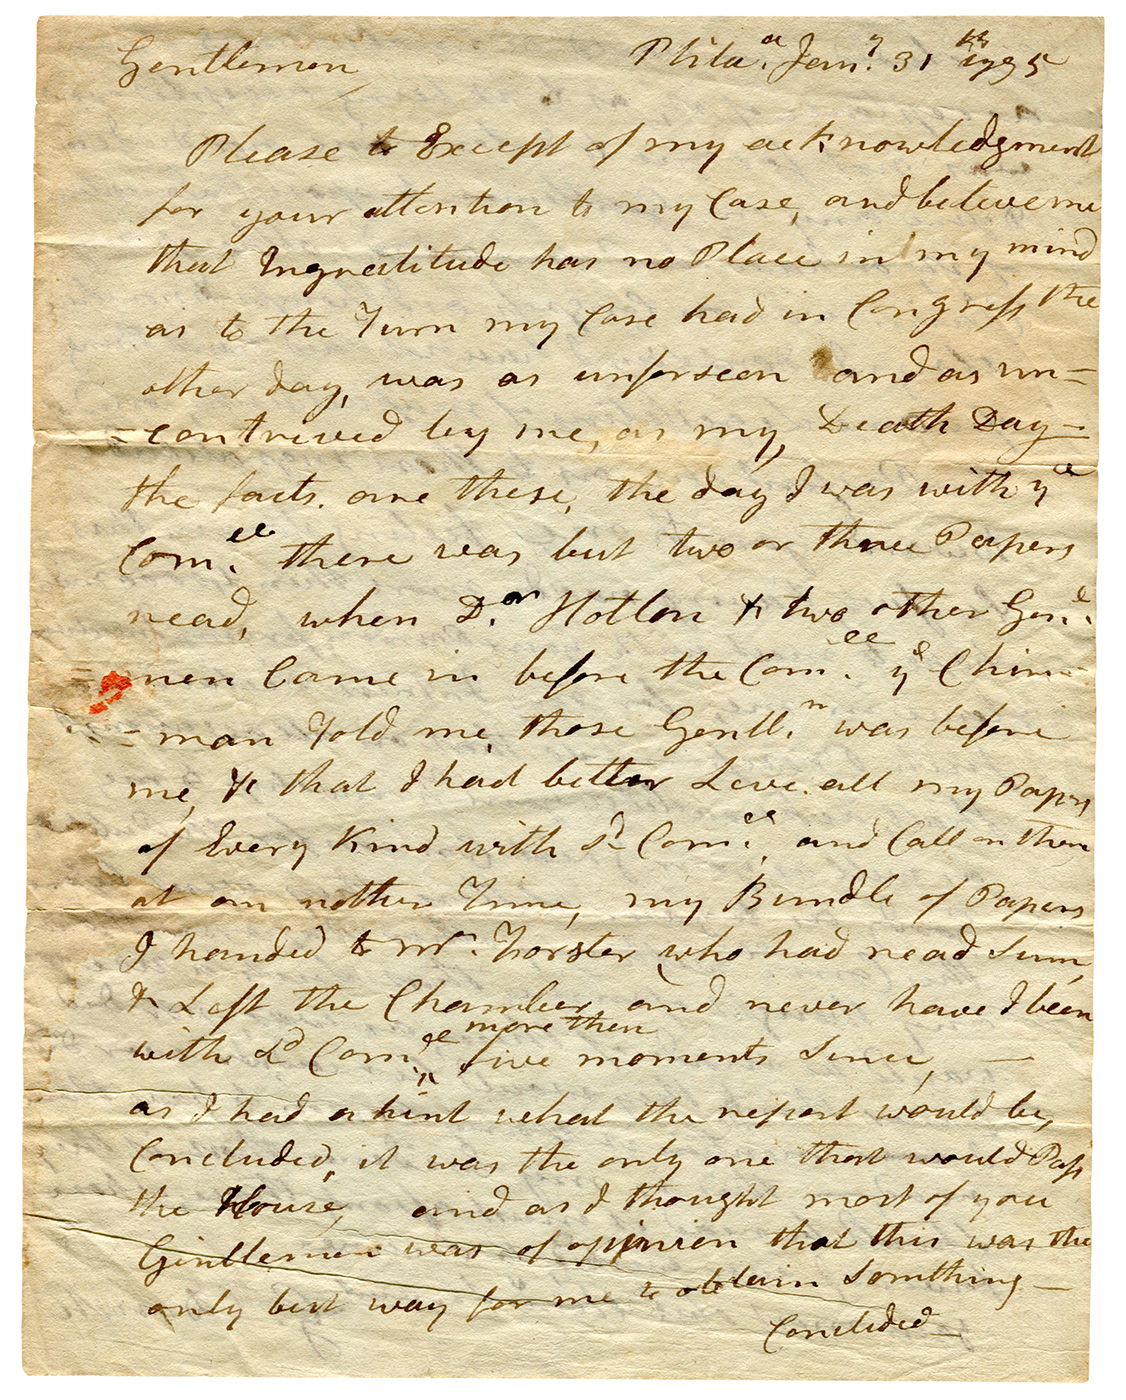 Gentlemen Phila.ª Jan.y 31st 1795
Please to Except of my acknowledgment
for your attention to my Case, and believe me
that Ingratitude has no Place in my mind
as to the Turn my Case had in Congress the
other day, was as unforseen and as un=
=contrived by me, as my, Death Day—
the facts. are these, the day I was with ye
Com.ee there was but two or three Papers
read, when D.or Holton & two other Gen.l
=men Came in before the Com.ee ye Chire=
=man Told me those Gentl.n was before
me, & that I had better Leve all my Papers
of Every Kind with sd Com.ee, and Call on them
at an nother Time, my Bundle of Papers
I handed to Mr. Forster who had read sum,
& Left the Chamber, and never have I been
with sd Com.ee more then five moments since, —
as I had a hint what the report would be,
Concluded, it was the only one that would Pass
the House, and as I thought most of you
Gintlemen was of opinion that this was the
only best way for me to obtain Somthing—
Concluded—